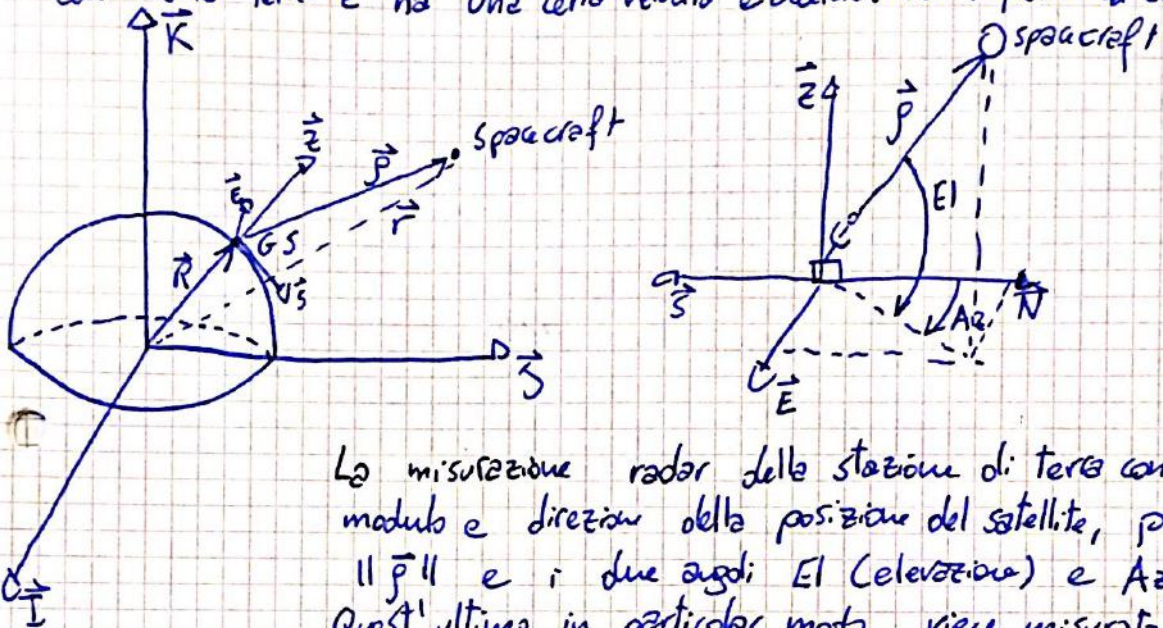 con
terra e ha una certa
K
spacecraft
Z
ρ
El
spacecraft
Z
ρ
r
E
GS
R
S
S
Az
N
E
J
I
La misurazione radar della stazione di terra
modulo e direzione della posizione del satellite,
||ρ|| e i due angoli El (elevazione) e Az
Quest'ultimo in particolar modo viene misurato